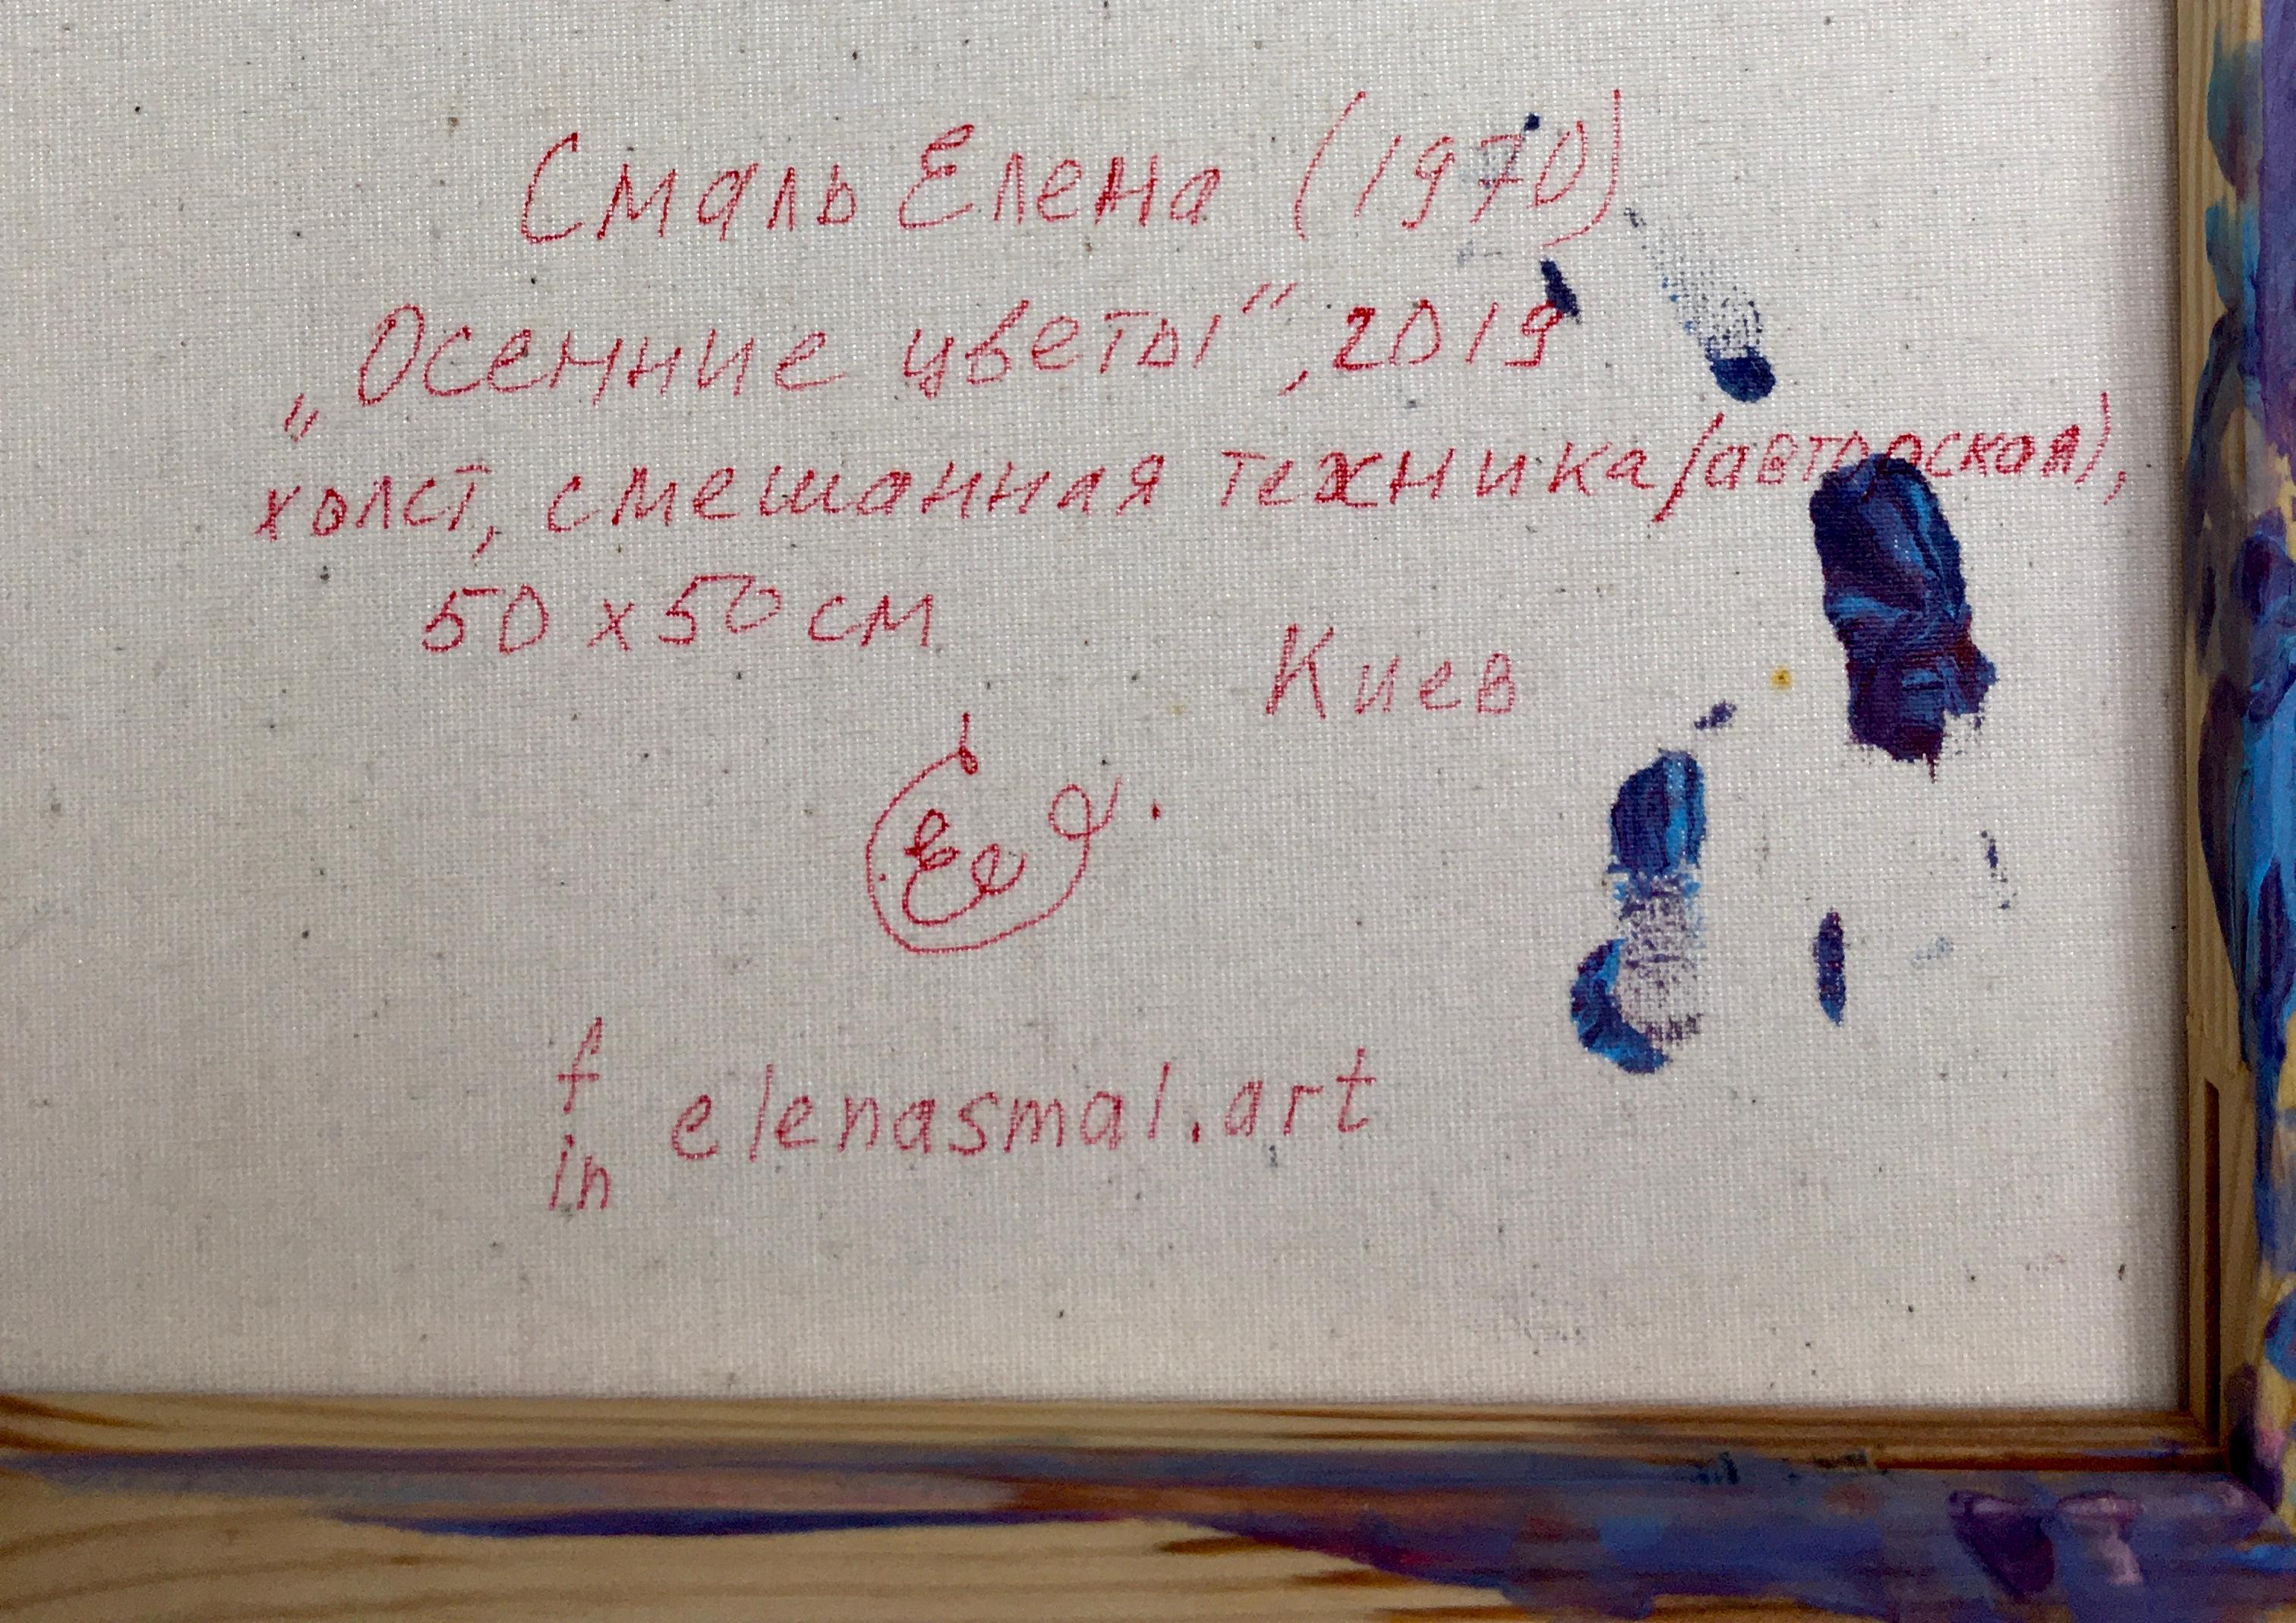 Смаль Елена (1970)
„Осенние цветы", 2019
холст, смешанная техника (авторская),
50 x 50 см
Киев
f
elenasmal.art
in